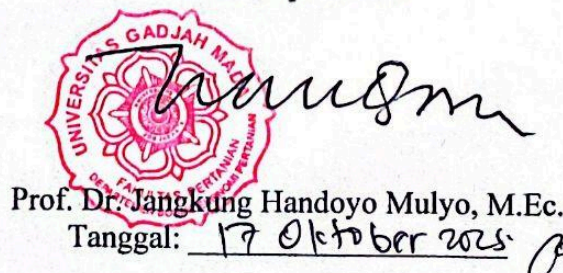 UNIVERSITAS GADJAH MADA
FAKULTAS PERTANIAN
Prof. Dr. Jangkung Handoyo Mulyo, M.Ec.
Tanggal: 17 Oktober 2025